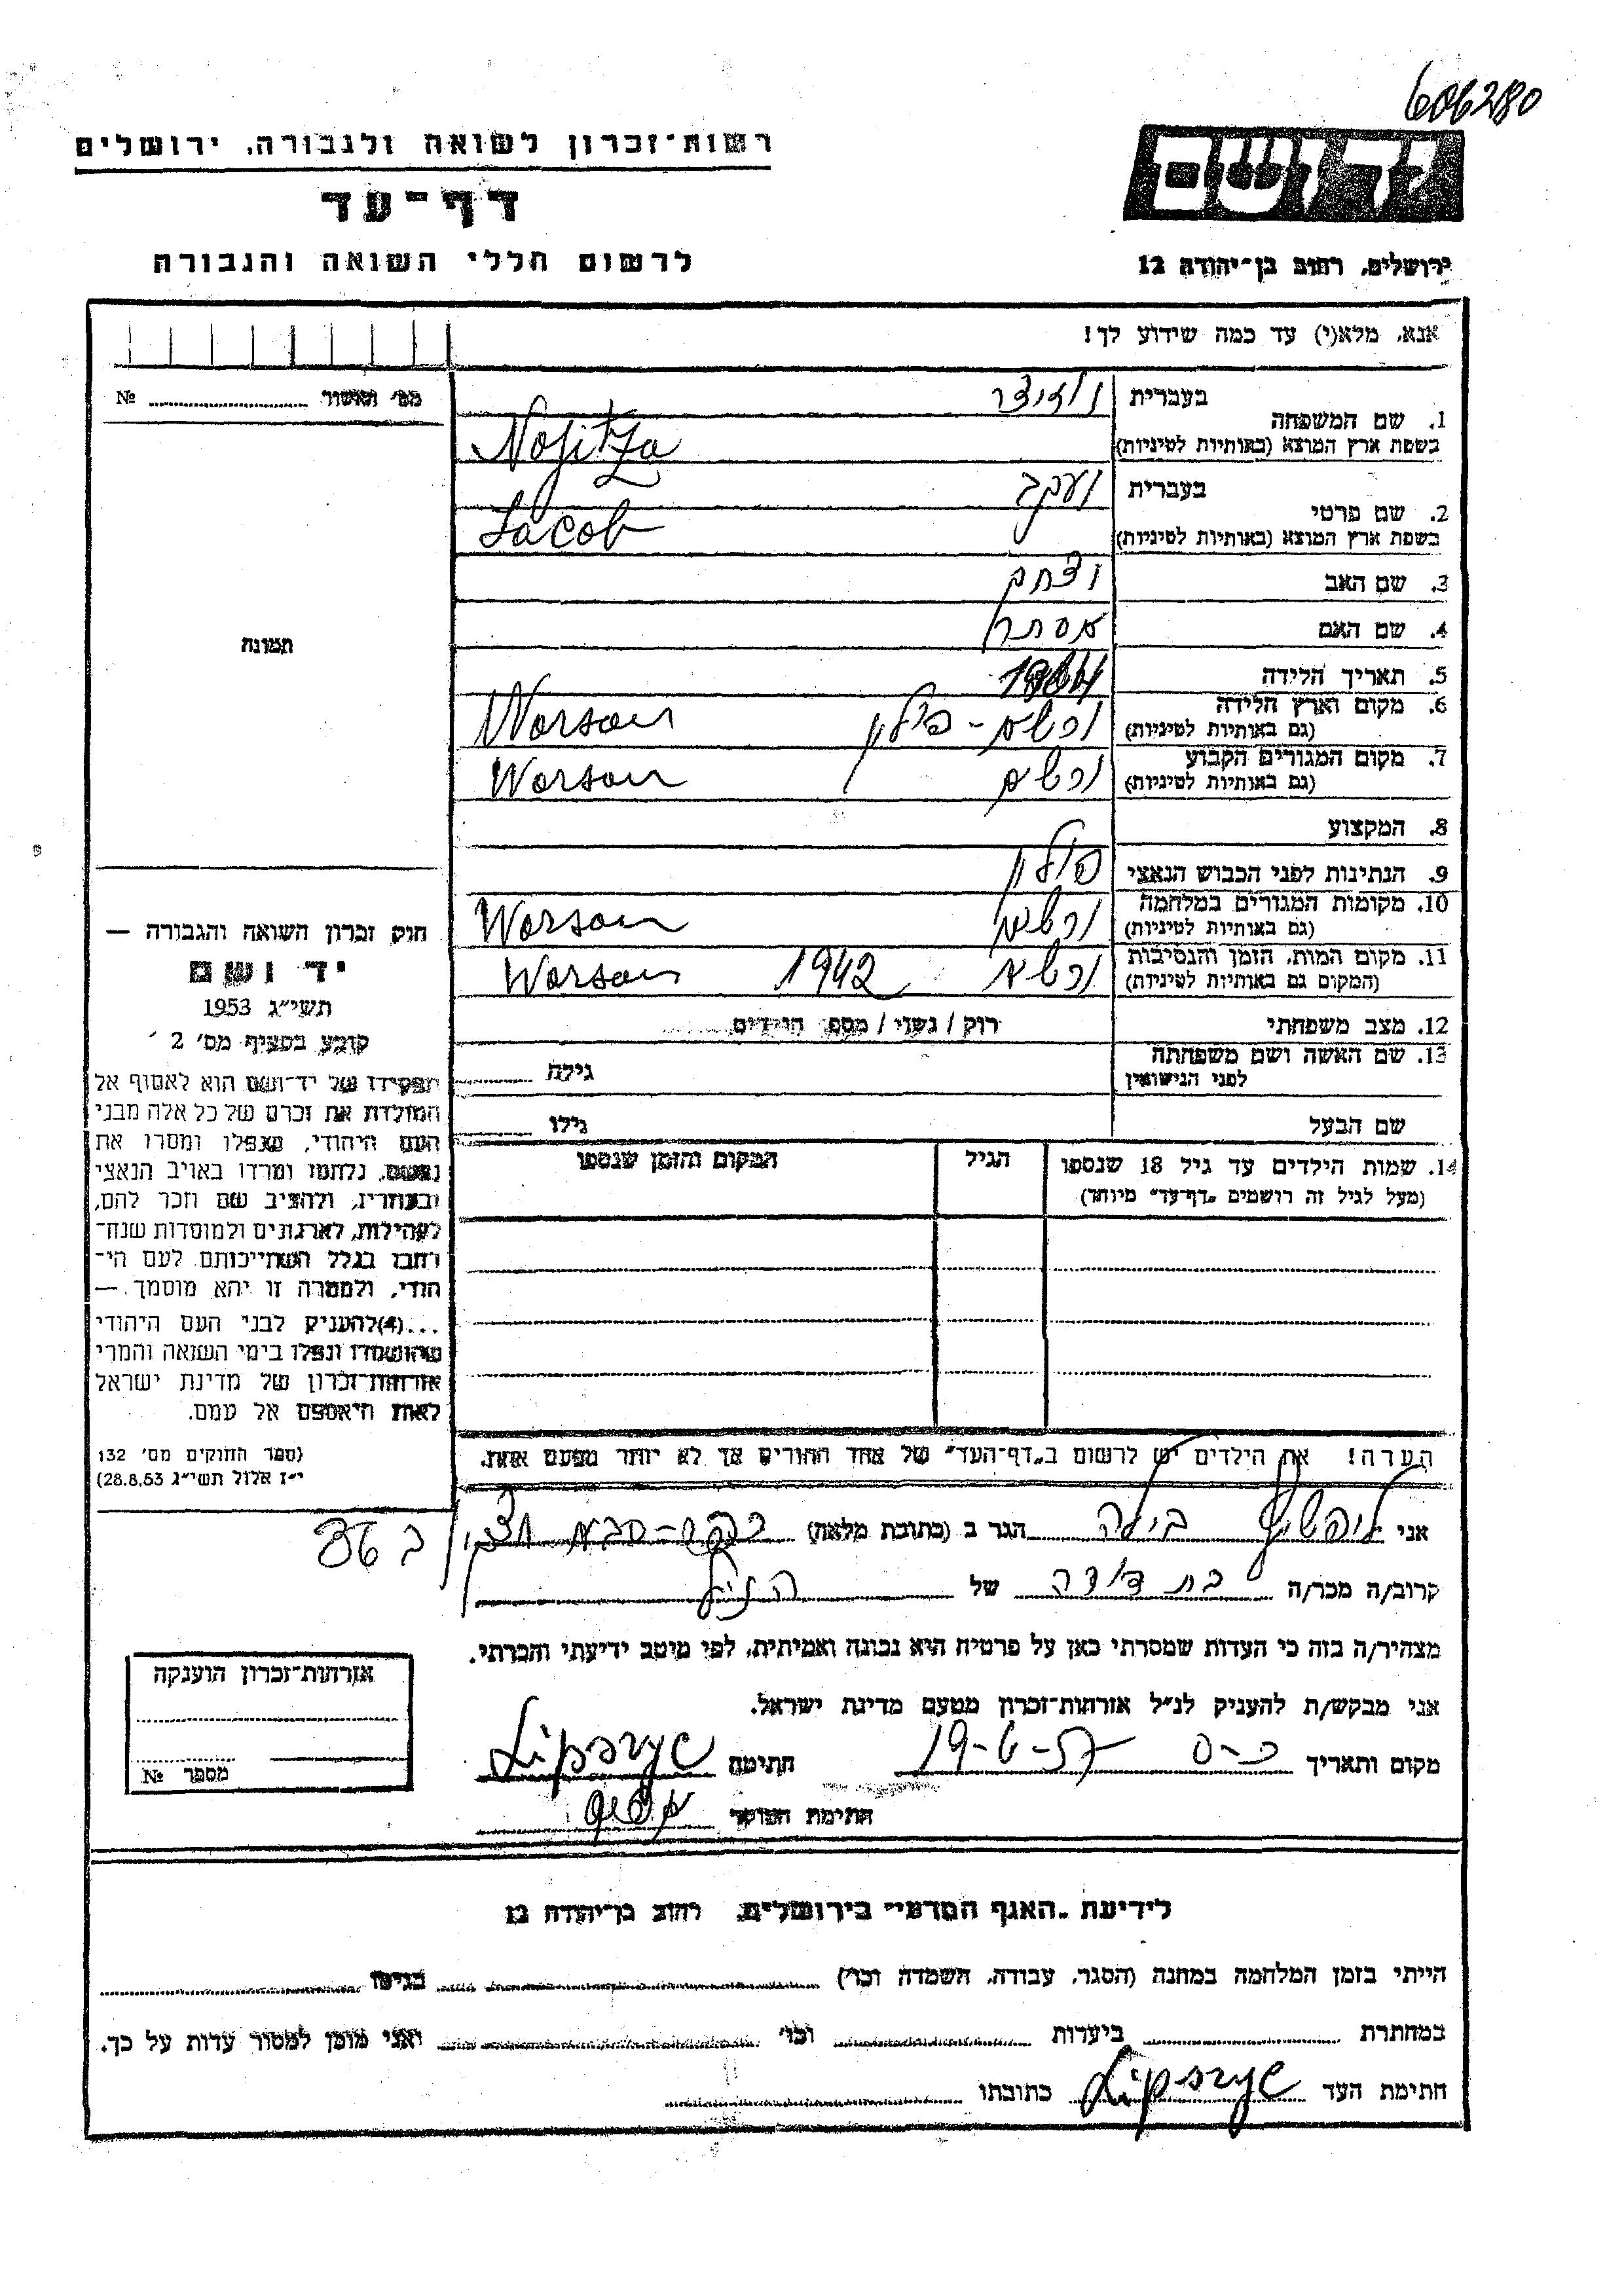 606280
רשות־זכרון לשואה ולגבורה, ירושלים
דף־עד
לרשום חללי השואה והגבורה
יד ושם
ירושלים, רחוב בן־יהודה 12
אנא, מלא(י) עד כמה שידוע לך!
מס' ותאשור №
1. שם המשפחה
בעברית
בשפת ארץ המוצא (באותיות לטיניות)
2. שם פרטי
בעברית יעקב
בשפת ארץ המוצא (באותיות לטיניות) Jacob
3. שם האב יצחק
4. שם האם אסתר
5. תאריך הלידה
6. מקום וארץ הלידה ורשא - פולין Warsaw
(גם באותיות לטיניות)
7. מקום המגורים הקבוע ורשא Warsaw
(גם באותיות לטיניות)
8. המקצוע
9. הנתינות לפני הכבוש הנאצי פולין
10. מקומות המגורים במלחמה ורשא Warsaw
(גם באותיות לטיניות)
11. מקום המות, הזמן והנסיבות ורשא 1942 Warsaw
(המקום גם באותיות לטיניות)
12. מצב משפחתי רוק / נשוי / מספר הילדים
13. שם האשה ושם משפחתה
לפני הנישואין
גילה
שם הבעל גילו
14. שמות הילדים עד גיל 18 שנספו
(מעל לגיל זה רושמים „דף־עד" מיוחד)
הגיל
המקום והזמן שנספו
הערה! את הילדים יש לרשום ב„דף־העד" של אחד ההורים אך לא יותר מפעם אחת.
תמונה
חוק זכרון השואה והגבורה —
יד ושם
תשי״ג 1953
קובע בסעיף מס' 2
תפקידו של יד־ושם הוא לאסוף אל
המולדת את זכרם של כל אלה מבני
העם היהודי, שנפלו ומסרו את
נפשם, נלחמו ומרדו באויב הנאצי
ובעוזריו, ולהציב שם וזכר להם,
לקהילות, לארגונים ולמוסדות שנח־
רבו בגלל השתייכותם לעם הי־
הודי, ולמטרה זו יהא מוסמך —
...(4)להעניק לבני העם היהודי
שהושמדו ונפלו בימי השואה והמרי
אזרחות־זכרון של מדינת ישראל
לאות היאספם אל עמם.
(ספר החוקים מס' 132
י״ז אלול תשי״ג 28.8.53)
אני ליפשיץ בילה הגר ב (כתובת מלאה) כפר-סבא
קרוב/ה מכר/ה בת דודה של הנ״ל
מצהיר/ה בזה כי העדות שמסרתי כאן על פרטיה היא נכונה ואמיתית, לפי מיטב ידיעתי והכרתי.
אני מבקש/ת להעניק לנ״ל אזרחות־זכרון מטעם מדינת ישראל.
מקום ותאריך כ-ס 19-6-57 חתימה Lipszyc
חתימת הפוקד
אזרחות־זכרון הוענקה
מספר №
לידיעת „האגף המדעי" בירושלים, רחוב בן־יהודה 12
הייתי בזמן המלחמה במחנה (הסגר, עבודה, השמדה וכו') בגיטו
במחתרת ביערות וכו' ואני מוכן למסור עדות על כך.
חתימת העד Lipszyc כתובתו